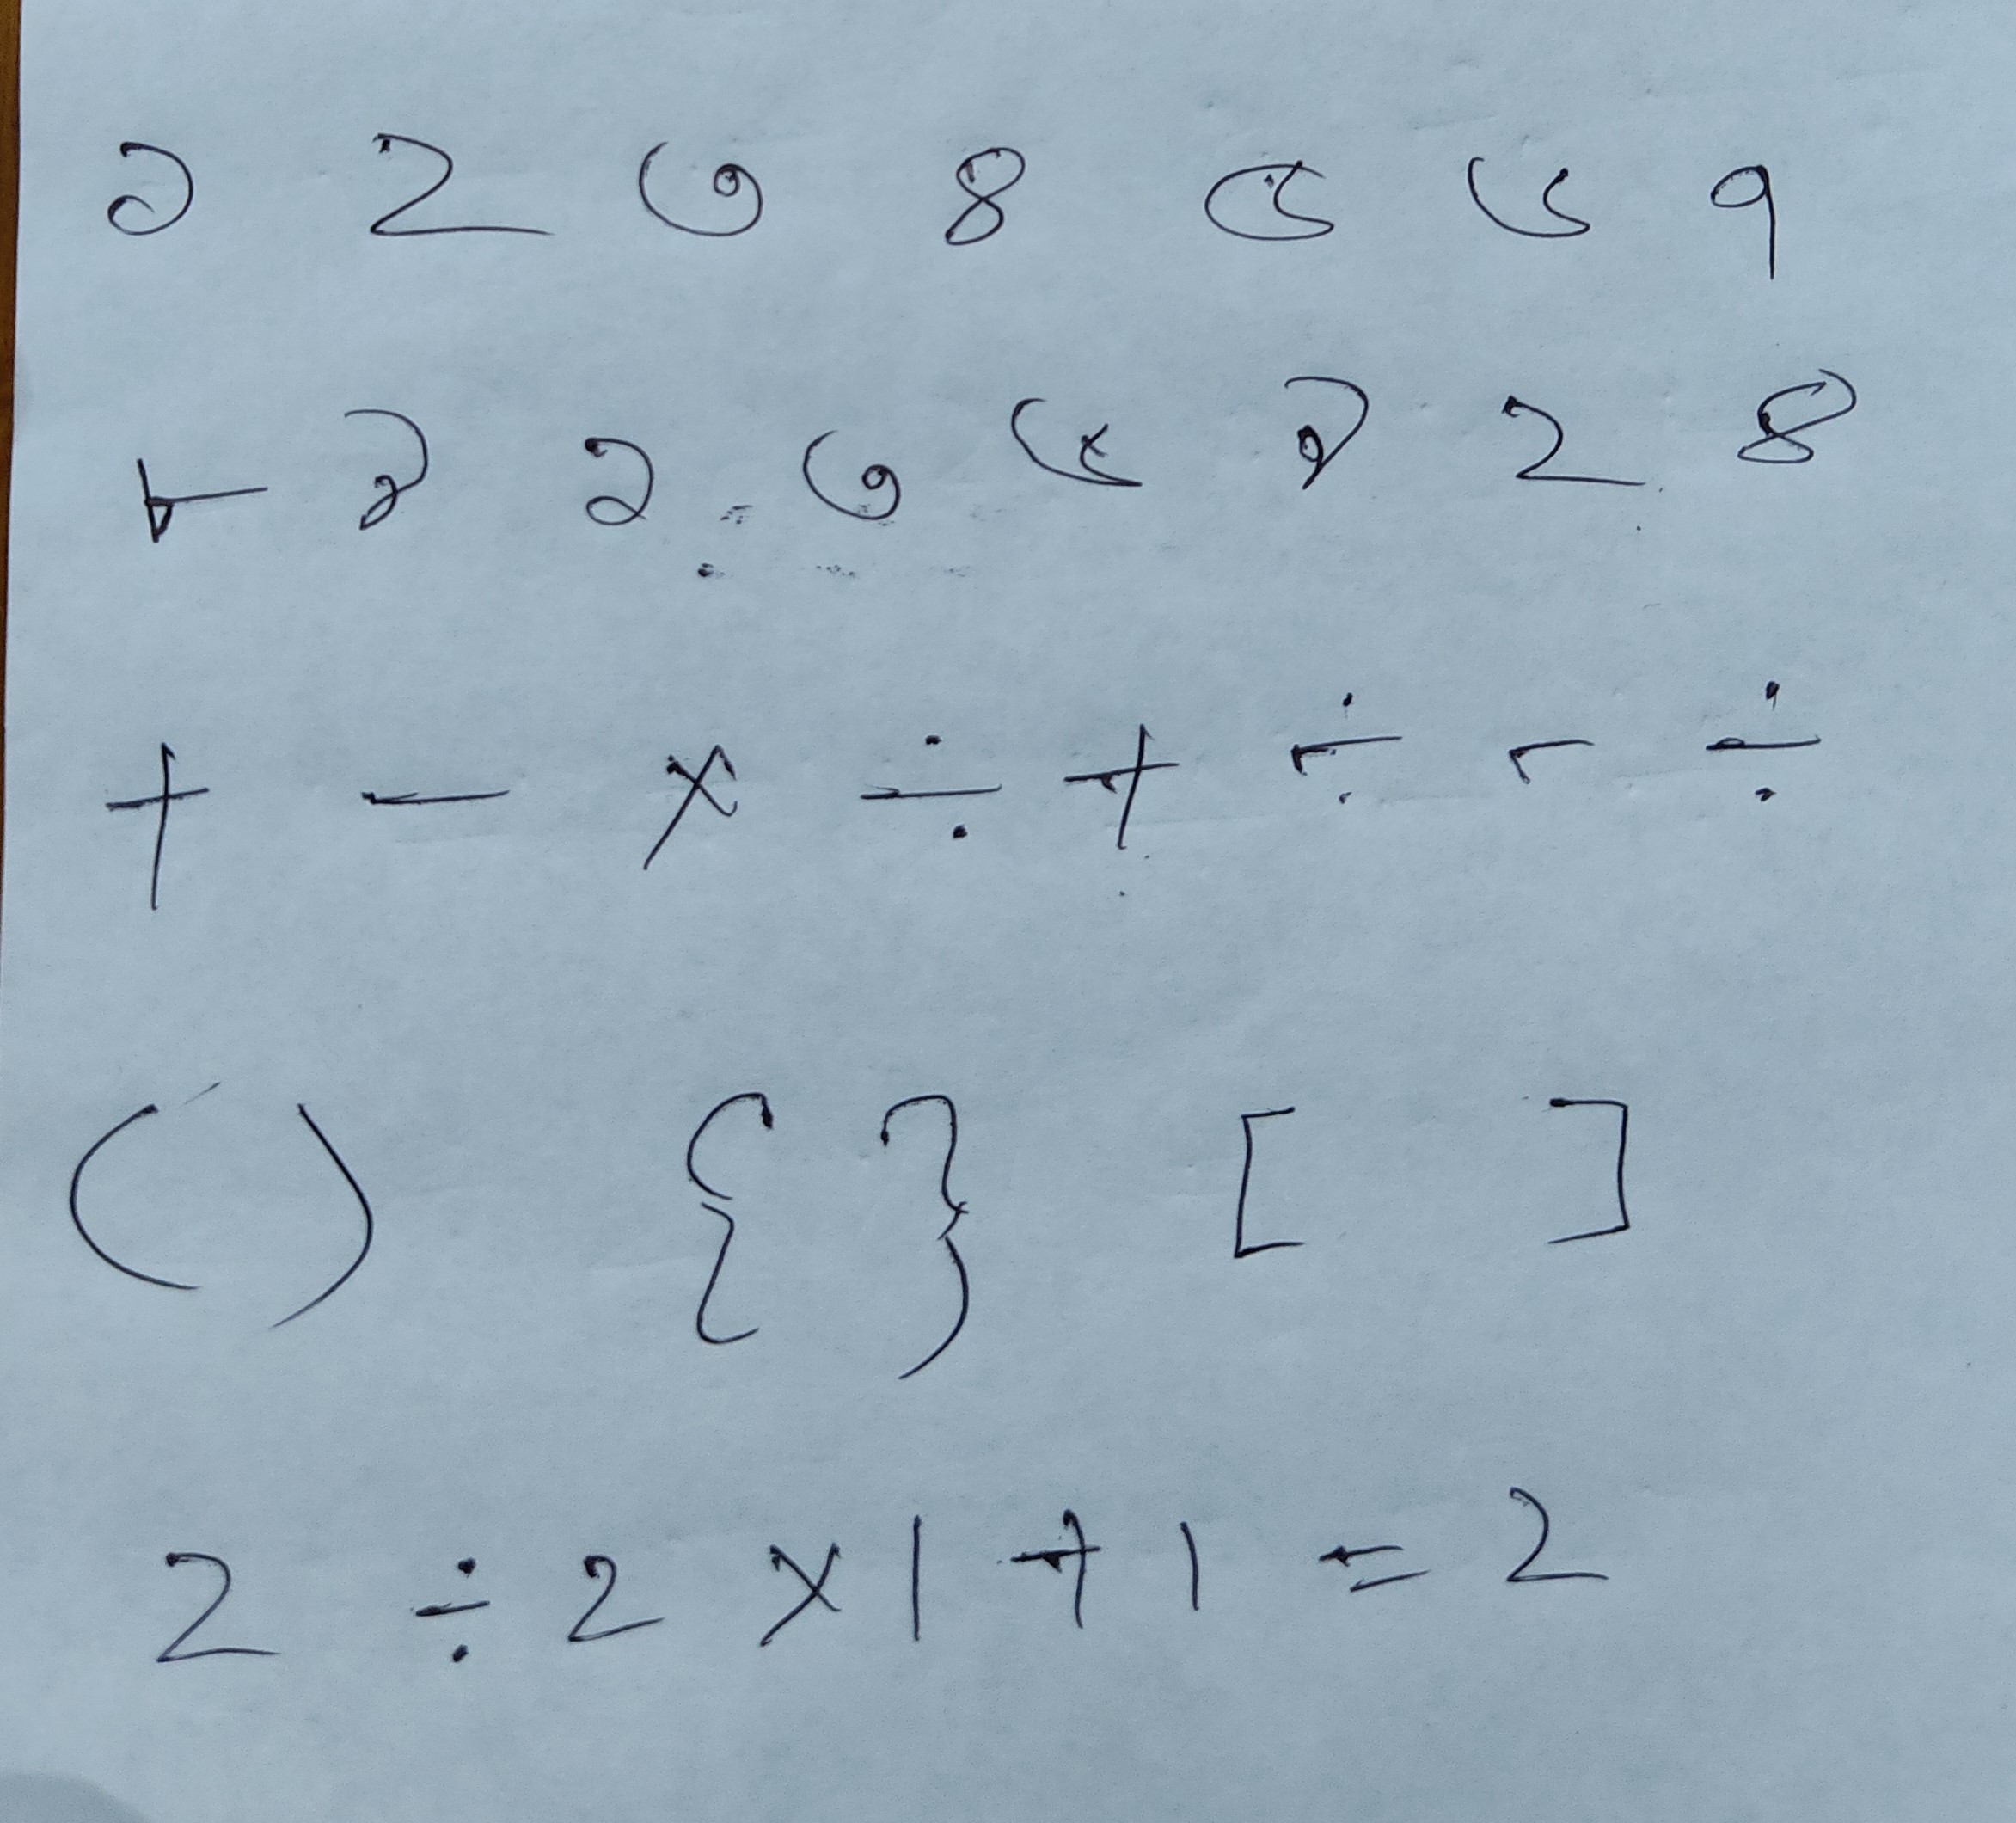 ১ ২ ৩ ৪ ৫ ৬ ৭
৮ ৯ ১ ৩ ৬ ৯ ২ ৪
+ - × ÷ + ÷ - ÷
( ) { } [ ]
2 ÷ 2 × 1 + 1 = 2